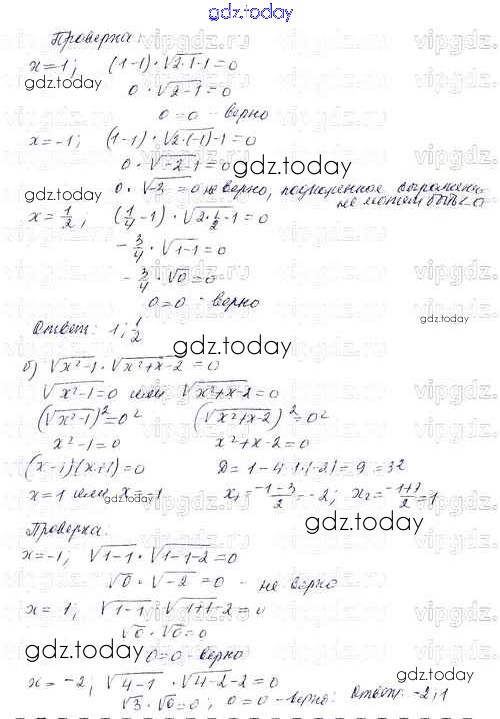 gdz.today
Проверка:
x=1; (1-1)·√(2·1-1)=0
gdz.today
0·√(2-1)=0
0=0 - верно
x=-1; (1-1)·√(2·(-1)-1)=0
0·√(-2-1)=0
gdz.today
gdz.today
0·√-3=0 не верно, подкоренное выражение
не может быть < 0
x=1/2; (1/4-1)·√(2·1/2-1)=0
-3/4·√(1-1)=0
-3/4·√0=0
0=0 - верно
gdz.today
Ответ: 1; 1/2
gdz.today
б) √(x²-1)·√(x²+x-2)=0
√(x²-1)=0 или √(x²+x-2)=0
(√(x²-1))²=0² (√(x²+x-2))²=0²
x²-1=0 x²+x-2=0
(x-1)(x+1)=0 D=1-4·1·(-2)=9=3²
x=1 или x=-1 x₁=(-1-3)/2=-2; x₂=(-1+3)/2=1
gdz.today
gdz.today
Проверка:
x=-1; √(1-1)·√(1-1-2)=0
√0·√-2=0 - не верно
gdz.today
x=1; √(1-1)·√(1+1-2)=0
√0·√0=0
gdz.today
0=0 - верно
gdz.today
x=-2; √(4-1)·√(4-2-2)=0
√3·√0=0; 0=0 - верно; Ответ: -2; 1
vipgdz.ru